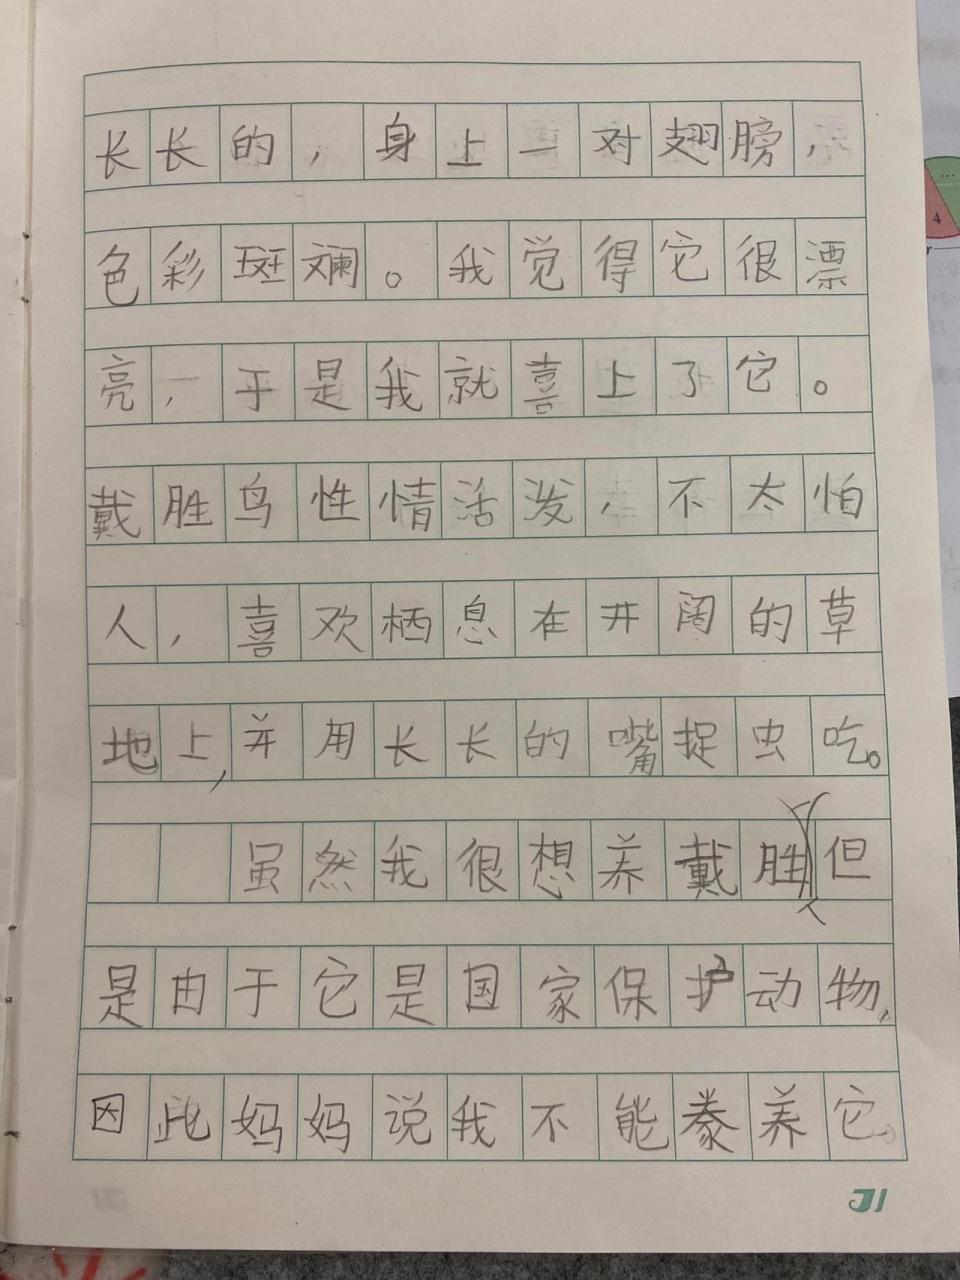 长长的，身上一对翅膀，
色彩斑斓。我觉得它很漂
亮，于是我就喜上了它。
戴胜鸟性情活泼，不太怕
人，喜欢栖息在开阔的草
地上，并用长长的嘴捉虫吃。
虽然我很想养戴胜，但
是由于它是国家保护动物，
因此妈妈说我不能豢养它。
4